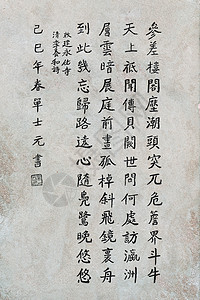 參差樓閣壓潮頭突兀危簷界斗牛
天上祗聞傳貝闕世間何處訪瀛洲
層雲暗展庭前畫孤棹斜飛鏡裏舟
到此幾忘歸路遠心隨鳧鷺晚悠悠
永佑寺
清李養和詩
己巳午春單士元書